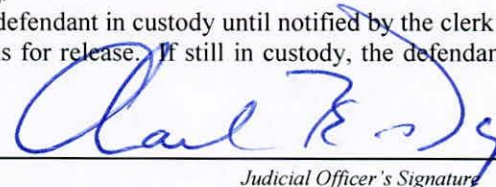 defendant in custody until notified by the clerk
s for release. If still in custody, the defendan
Judicial Officer's Signature